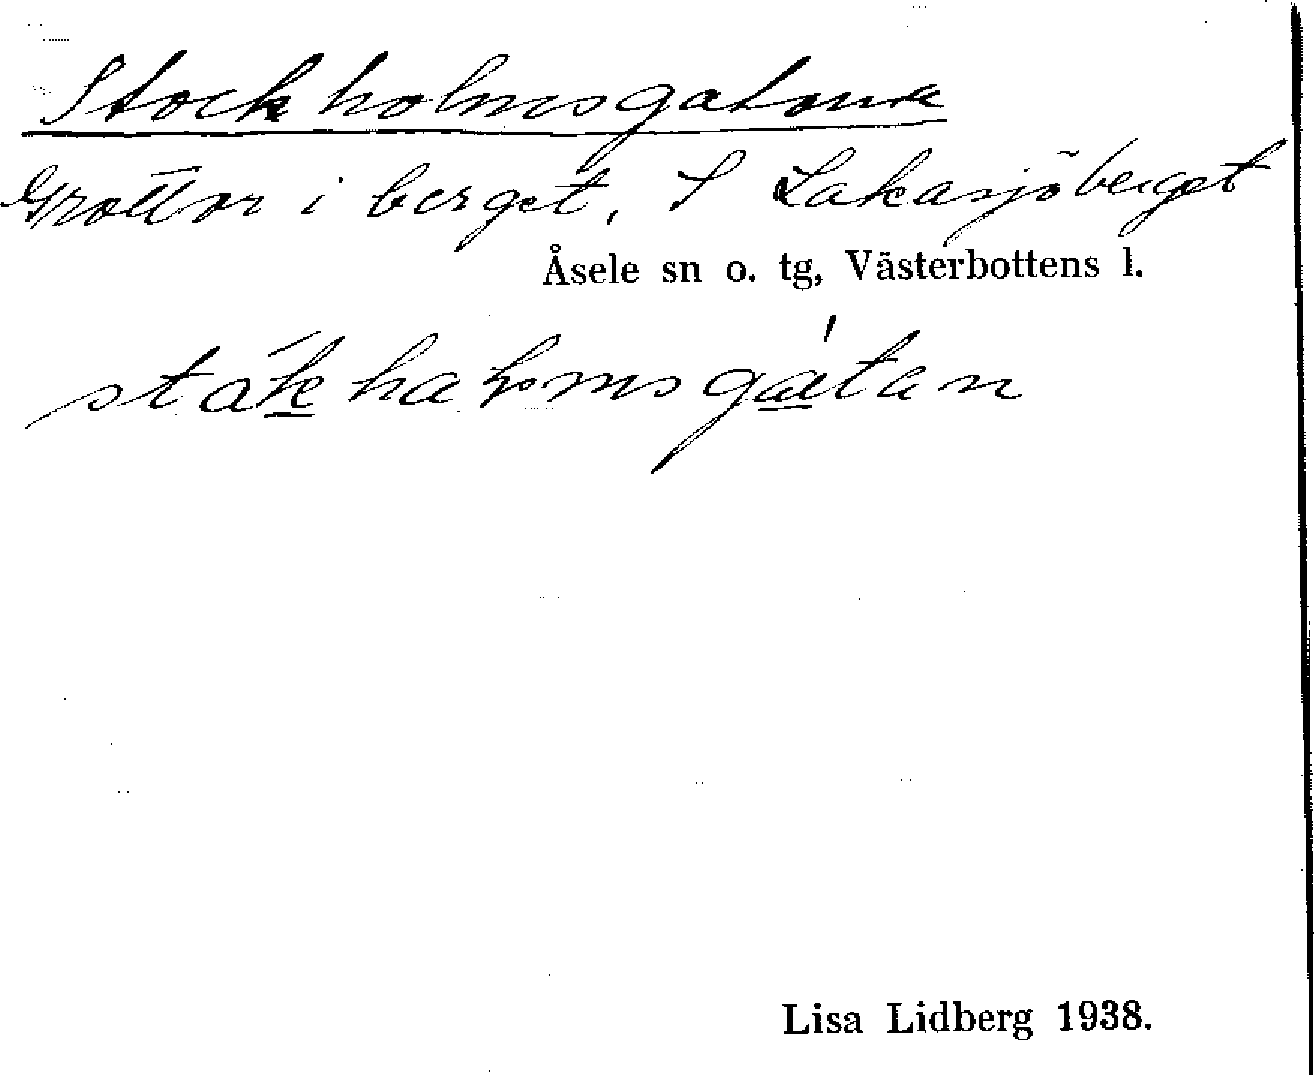 Stockholmsgatorna
Grottor i berget, S Lakasjöberget
Åsele sn o. tg, Västerbottens l.
Lisa Lidberg 1938.